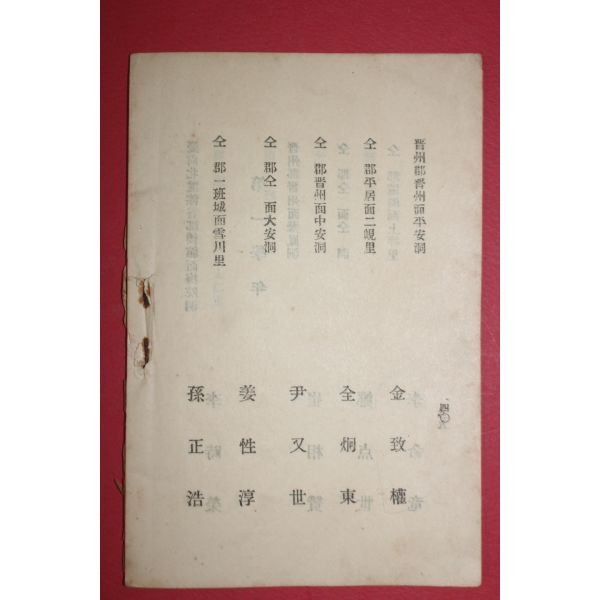 晋州郡晋州面平安洞
金致權
仝 郡平居面二峴里
全炯東
仝 郡晋州面中安洞
尹又世
仝 郡仝 面大安洞
姜性淳
仝 郡一班城面雪川里
孫正浩